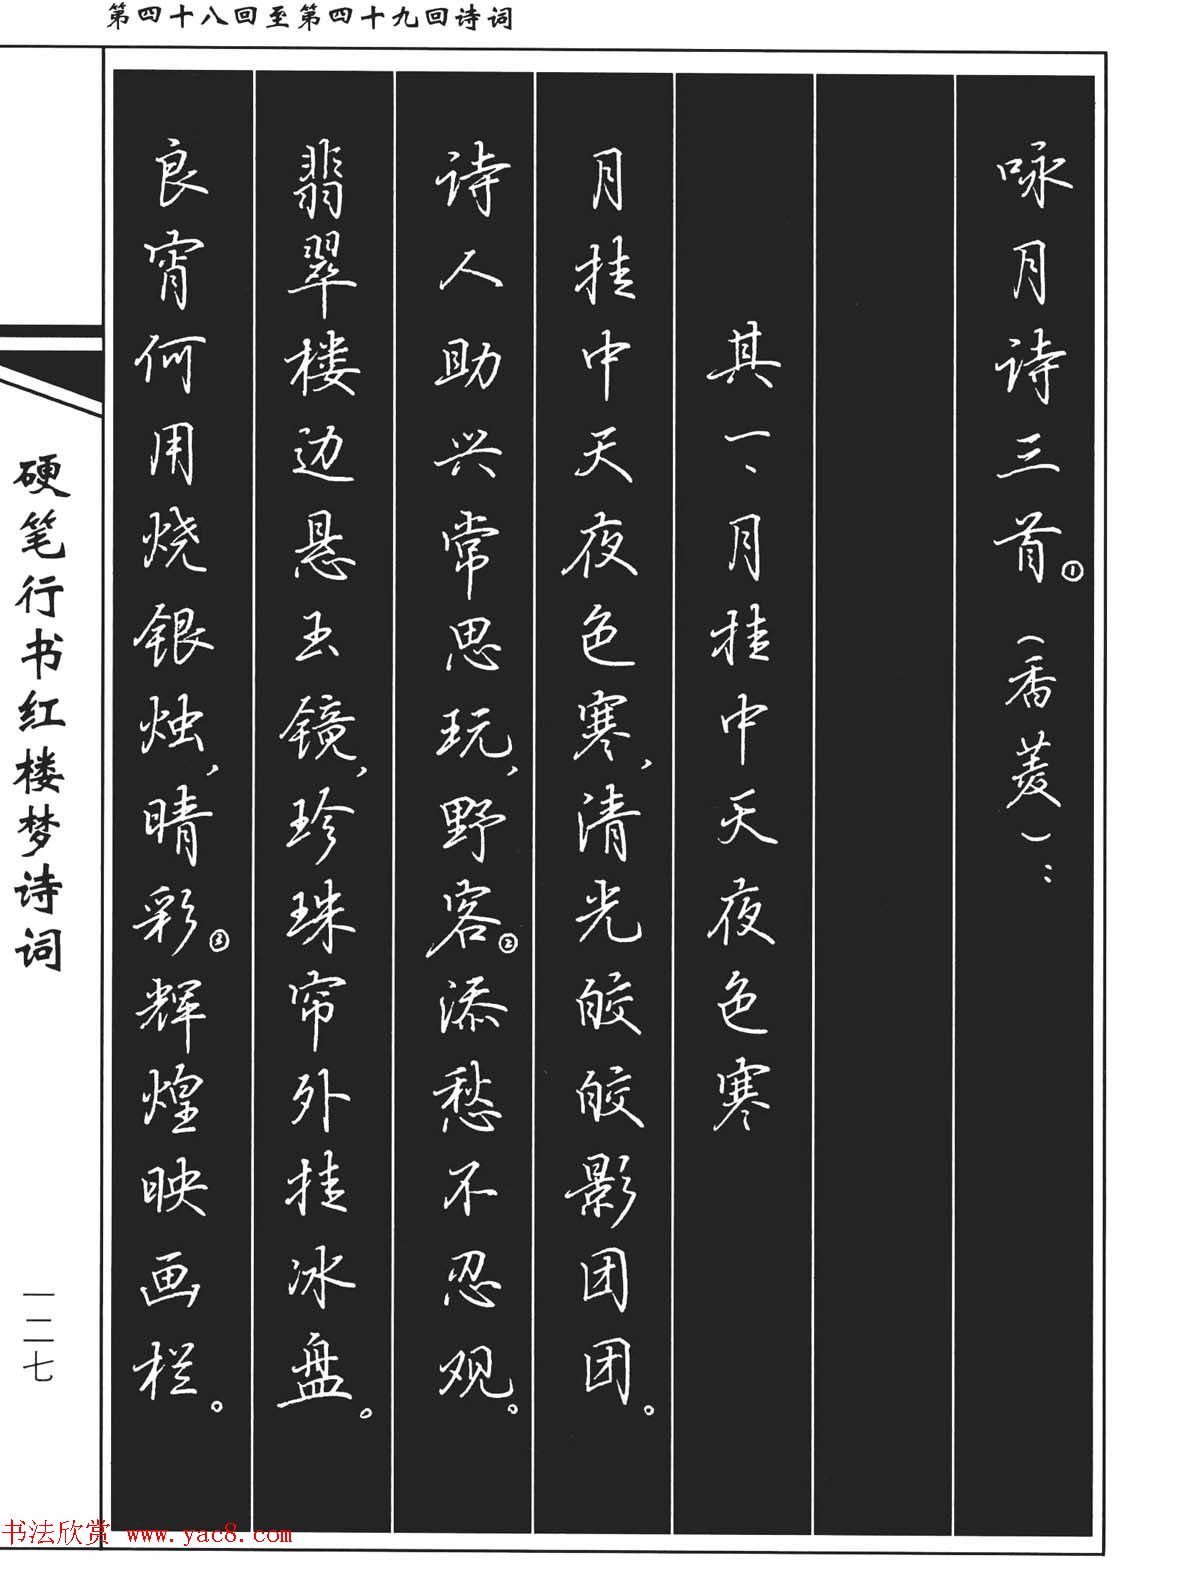 第四十八回至第四十九回诗词
咏月诗三首①（香菱）：
其一、月挂中天夜色寒
月挂中天夜色寒，清光皎皎影团团。
诗人助兴常思玩，野客②添愁不忍观。
翡翠楼边悬玉镜，珍珠帘外挂冰盘。
良宵何用烧银烛，晴彩③辉煌映画栏。
硬笔行书红楼梦诗词
一二七
书法欣赏 www.yac8.com